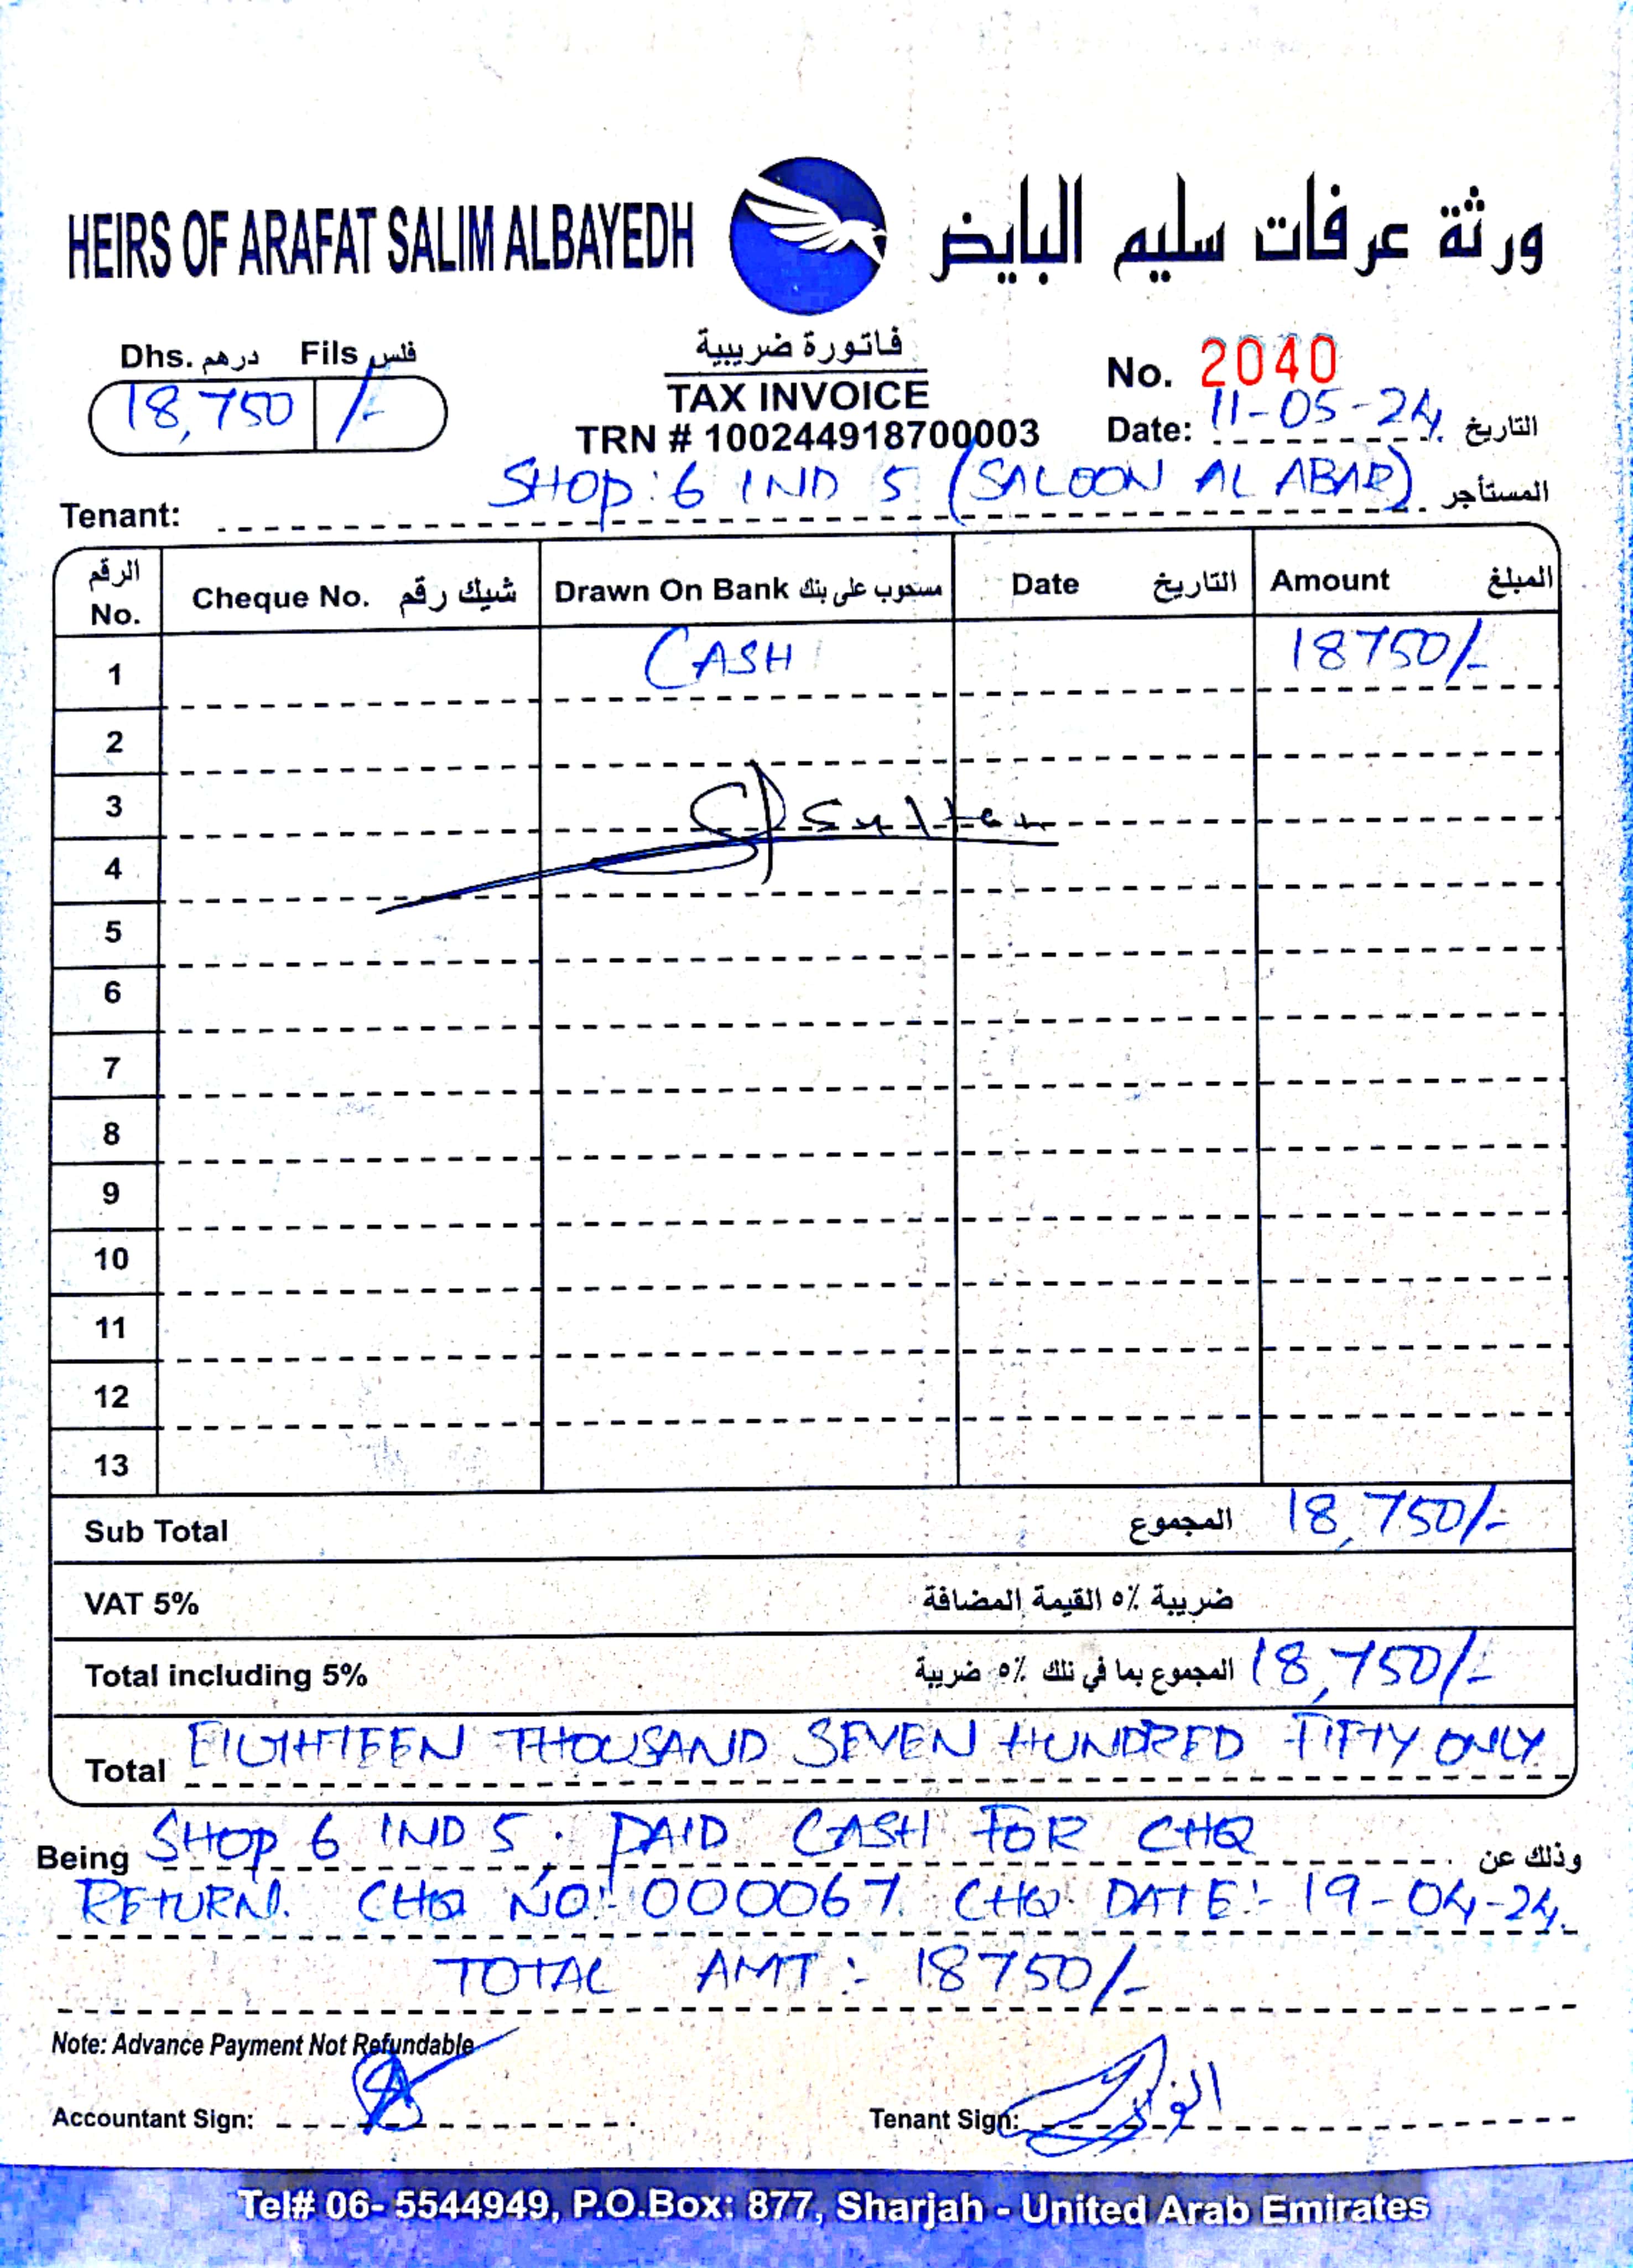 HEIRS OF ARAFAT SALIM ALBAYEDH ورثة عرفات سليم البايض
Dhs. درهم Fils فلس
18,750 /-
فاتورة ضريبية
TAX INVOICE
TRN # 100244918700003
No. 2040
Date: 11-05-24 التاريخ
Tenant: SHOP: 6 IND 5 (SALOON AL ABAR) المستأجر
الرقم No. Cheque No. شيك رقم Drawn On Bank مسحوب على بنك Date التاريخ Amount المبلغ
1 CASH 18750/-
2
3 Sultan
4
5
6
7
8
9
10
11
12
13
Sub Total المجموع 18,750/-
VAT 5% ضريبة ٥٪ القيمة المضافة
Total including 5% المجموع بما في ذلك ٥٪ ضريبة 18,750/-
Total EIGHTEEN THOUSAND SEVEN HUNDRED FIFTY ONLY
Being SHOP 6 IND 5. PAID CASH FOR CHQ وذلك عن
RETURN. CHQ NO:- 000067. CHQ. DATE:- 19-04-24.
TOTAL AMT :- 18750/-
Note: Advance Payment Not Refundable
Accountant Sign: Tenant Sign:
Tel# 06- 5544949, P.O.Box: 877, Sharjah - United Arab Emirates